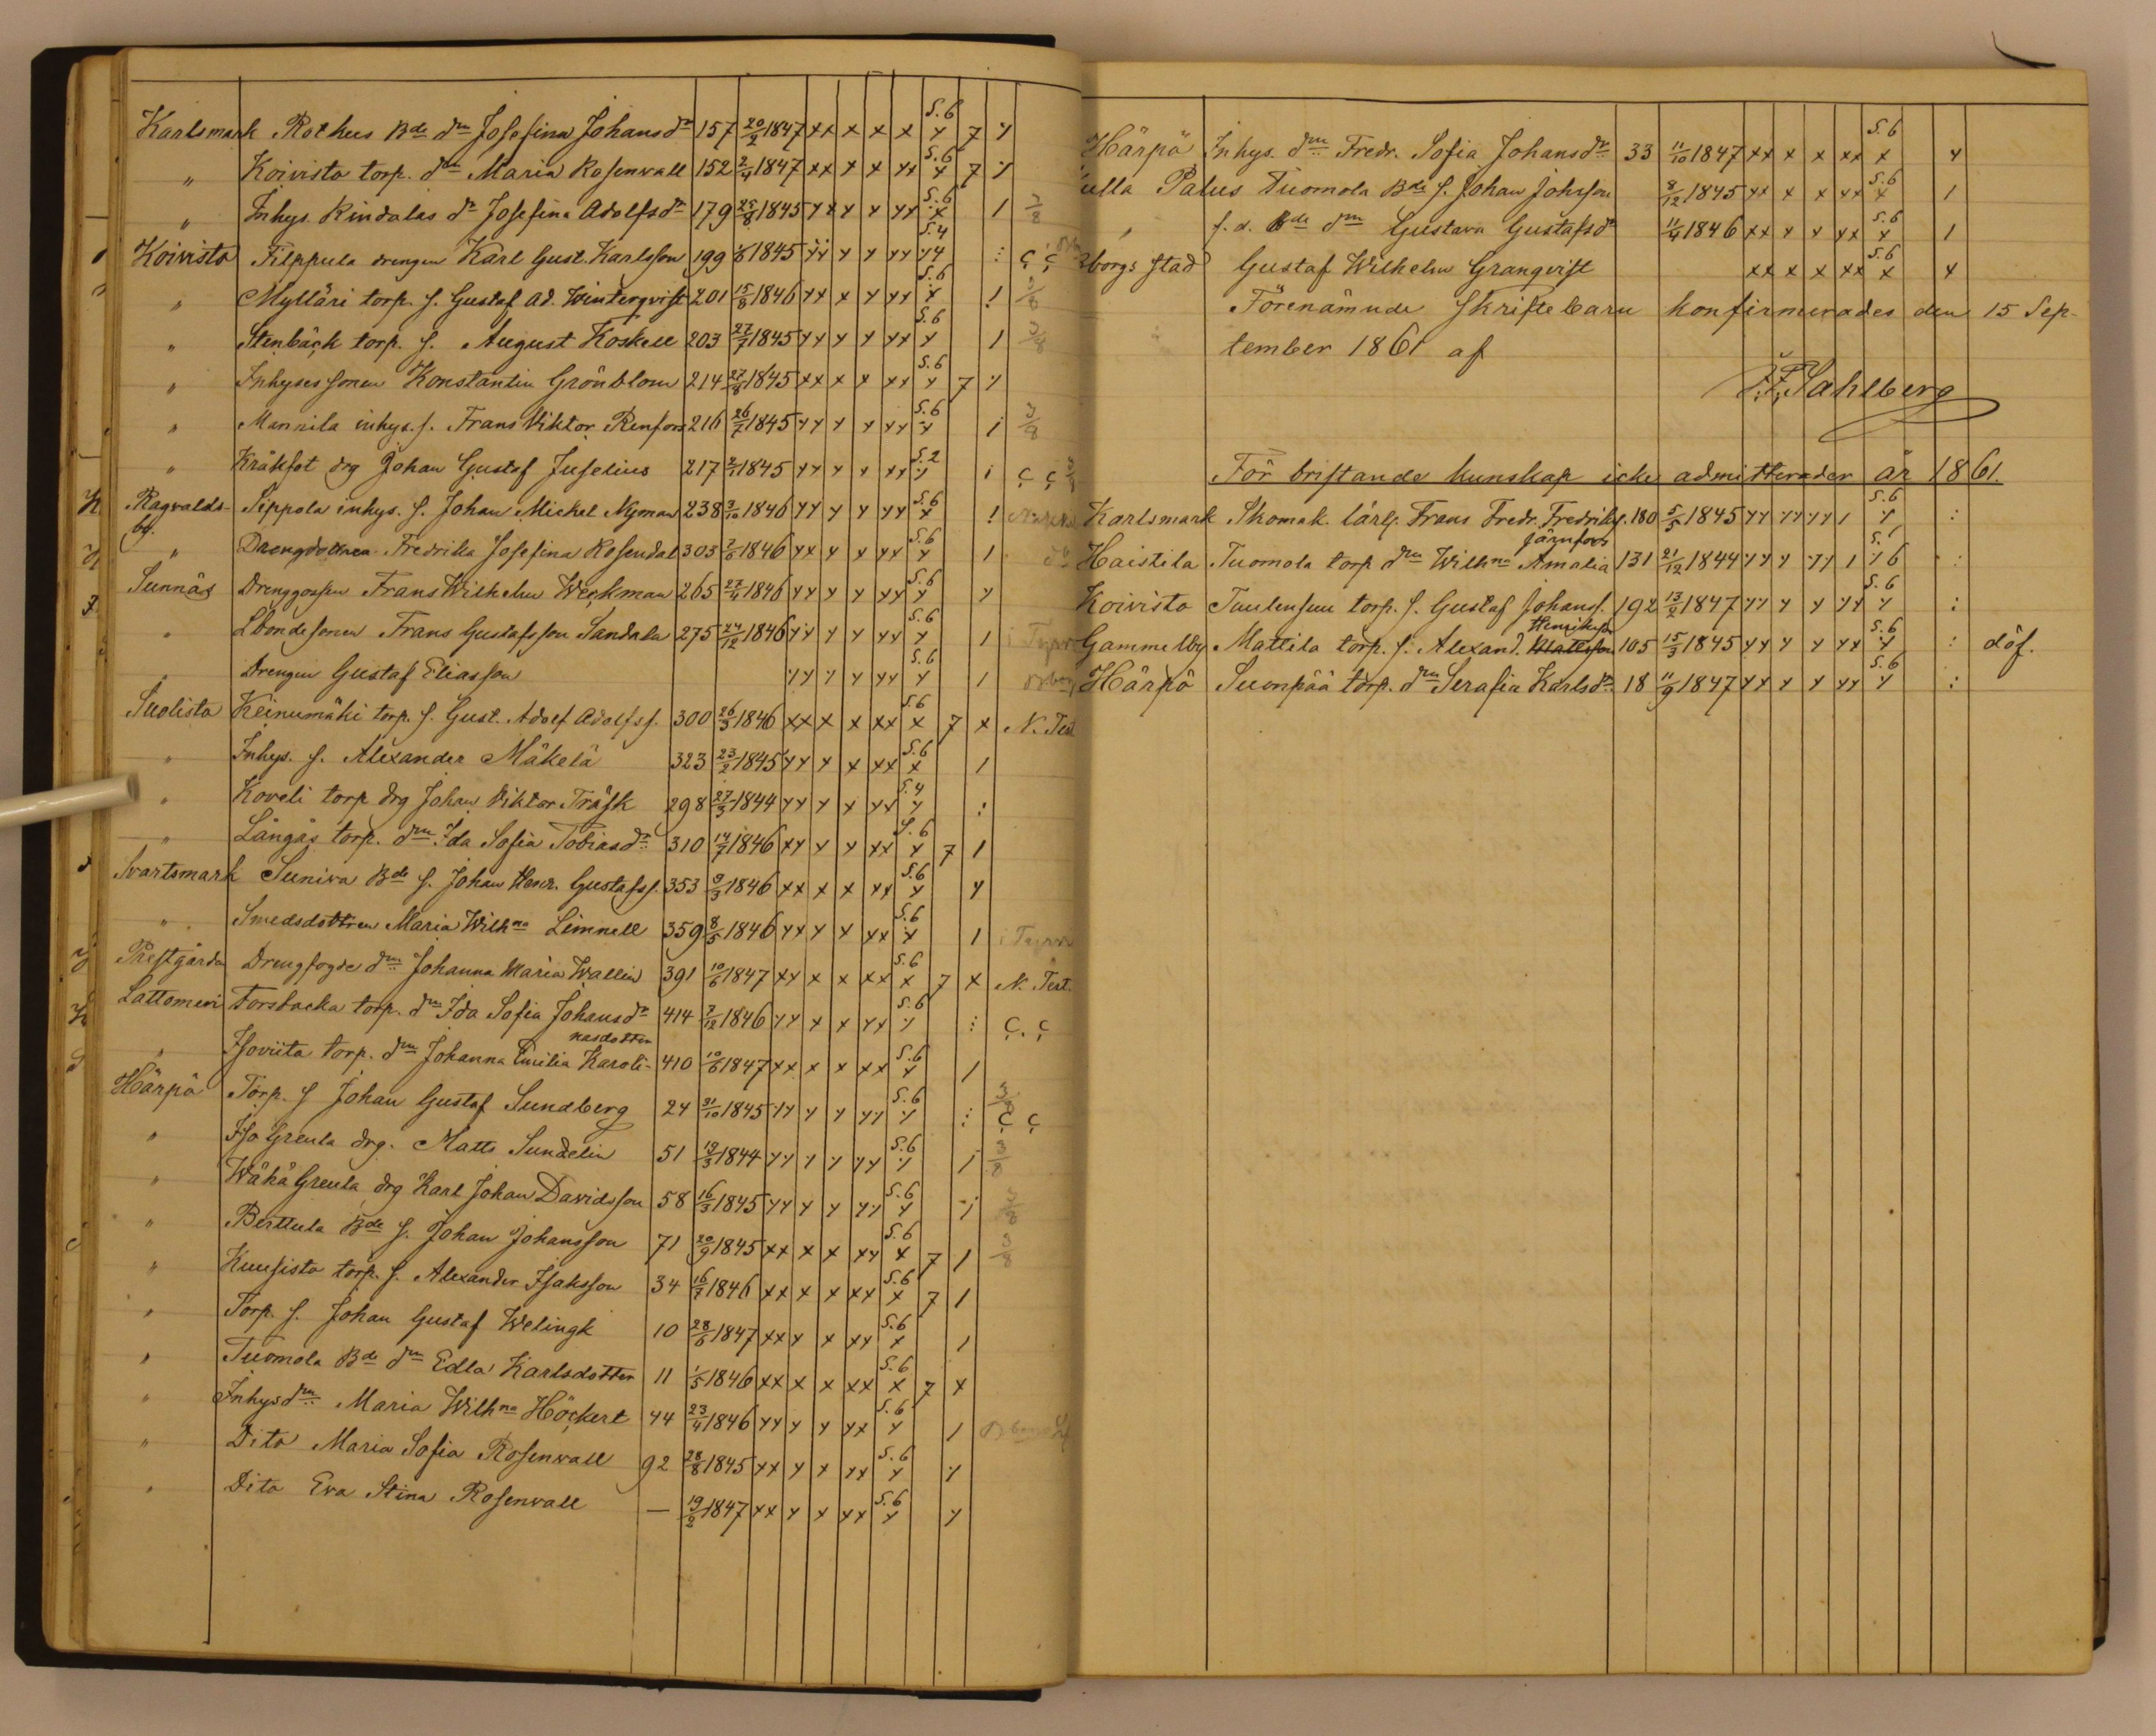 Karlsmark Rothus Bde dn Josefina Johansdr 157 20/2 1847 xx x x x S.6 x 7 y
" Koivisto torp. dn Maria Rosenvall 152 2/4 1847 xx x x xx S.6 x 7 y
" Inhys. Rindalas dr Josefina Adolfsdr 179 25/8 1845 xx x x xx S.6 x 1 3/8
Koivisto Filppula drengen Karl Gust. Karlsson 199 1845 xx x x xx S.4 x : ç ç
" Mylläri torp. s. Gustaf Ad. Winterqvist 201 15/8 1846 xx x x xx S.6 x 1 3/8
" Stenbäck torp. s. August Koskell 203 27/7 1845 xx x x xx S.6 x 1 3/8
" Inhyses sonen Konstantin Grönblom 214 27/8 1845 xx x x xx S.6 x 7 y
" Mannila inhys. s. Frans Viktor Renfors 216 26/7 1845 xx x x xx S.6 x 1 3/8
" Kråkfot drg Johan Gustaf Juselius 217 1845 xx x x xx S.2 x 1 ç ç
Ragvalds- Sippola inhys. s. Johan Michel Nyman 238 3/10 1846 xx x x xx S.6 x 1
by. " Drengdottren Fredrika Josefina Rosendal 303 1846 xx x x xx S.6 x 1 do
Sunnäs Drenggossen Frans Wilhelm Weckman 265 27/4 1846 xx x x xx S.6 x y
" Lbondesonen Frans Gustafsson Sandala 275 24/12 1846 xx x x xx S.6 x 1
" Drengen Gustaf Eliasson xx x x xx S.6 x 1
Suolisto Keinumäki torp. s. Gust. Adolf Adolfss. 300 26/3 1846 xx x x xx S.6 x 7 x N. Test
" Inhys. s. Alexander Mäkelä 323 23/2 1845 xx x x xx S.6 x 1
" Koveli torp drg Johan Viktor Träsk 298 27/3 1844 xx x x xx S.4 x :
" Långås torp. dn Ida Sofia Tobiasdr 310 14/7 1846 xx x x xx S.6 x 7 1
Svartsmark Suniva Bde s. Johan Henr. Gustafss. 353 9/3 1846 xx x x xx S.6 x y
" Smedsdottren Maria Wilhna Limnell 359 8/5 1846 xx x x xx S.6 x 1
Prestgården Drengfogde dn Johanna Maria Wallin 391 10/6 1847 xx x x xx S.6 x 7 x N. Test.
Lattomeri Torsbacka torp. dn Ida Sofia Johansdr 414 7/12 1846 xx x x xx S.6 x : ç. ç
" Isoviita torp. dn Johanna Emilia Karoli- nasdotter 410 10/6 1847 xx x x xx S.6 x 1
Härpö Torp. s Johan Gustaf Sundberg 24 31/10 1845 xx x x xx S.6 x : ç ç
" Iso Greula drg. Matts Sundelin 51 19/3 1844 xx x x xx S.6 x 1 3/8
" Wähä Greula drg Karl Johan Davidsson 58 16/3 1845 xx x x xx S.6 x y 3/8
" Berttula Bde s. Johan Johansson 71 20/9 1845 xx x x xx S.6 x 7 1 3/8
" Kuusisto torp. s. Alexander Isaksson 34 16/7 1846 xx x x xx S.6 x 7 1
" Torp. s. Johan Gustaf Welingk 10 28/6 1847 xx x x xx S.6 x 1
" Tuomola Bde dn Edla Karlsdotter 11 1/5 1846 xx x x xx S.6 x 7 x
" Inhysdn Maria Wilhna Höckert 44 23/4 1846 xx x x xx S.6 x 1
" Dito Maria Sofia Rosenvall 92 28/8 1845 xx x x xx S.6 x y
" Dito Eva Stina Rosenvall — 19/2 1847 xx x x xx S.6 x y
Härpö Inhys. dn Fredr. Sofia Johansdr 33 11/10 1847 xx x x xx S.6 x x
ulla Palus Tuomola Bde s. Johan Johsson 8/12 1845 xx x x xx S.6 x 1
" f.d. Bde dn Gustava Gustafsdr 11/4 1846 xx x x xx S.6 x 1
borgs stad Gustaf Wilhelm Granqvist xx x x xx S.6 x x
Förenämnde Skriftebarn konfirmerades den 15 Sep-
tember 1861 af
F. F. Sahlberg
För bristande kunskap icke admitterader år 1861.
Karlsmark Skomak. lärl. Frans Fredr. Fredrikss. 180 5/5 1845 xx xx xx 1 S.6 x :
Haistila Tuomola torp dn Wilhna Amalia Järnfors 131 21/12 1844 xx x xx 1 S. x 6 :
Koivisto Tuulensuu torp. s. Gustaf Johanss. 192 13/2 1847 xx x x xx S.6 x :
Gammelby Mattila torp. s. Alexand. Mattsson Henriksson 105 15/3 1845 xx x x xx S.6 x : döf.
Härpö Suonpää torp. dn Serafia Karlsdr. 18 11/9 1847 xx x x xx S.6 x :